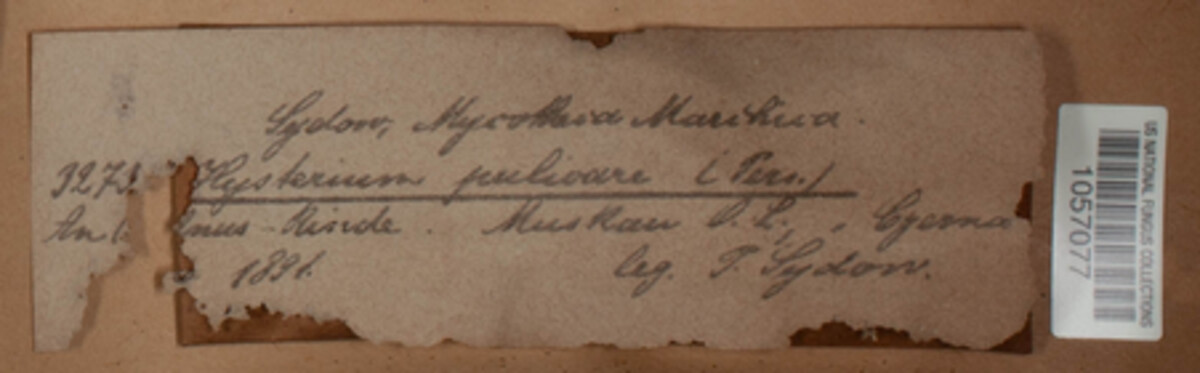 Sydow, Mycotheca Marchica.
327 Hysterium pulicare (Pers.)
An nus-Rinde. Muskau O. L.,
1891. leg. P. Sydow.
US NATIONAL FUNGUS COLLECTIONS
1057077